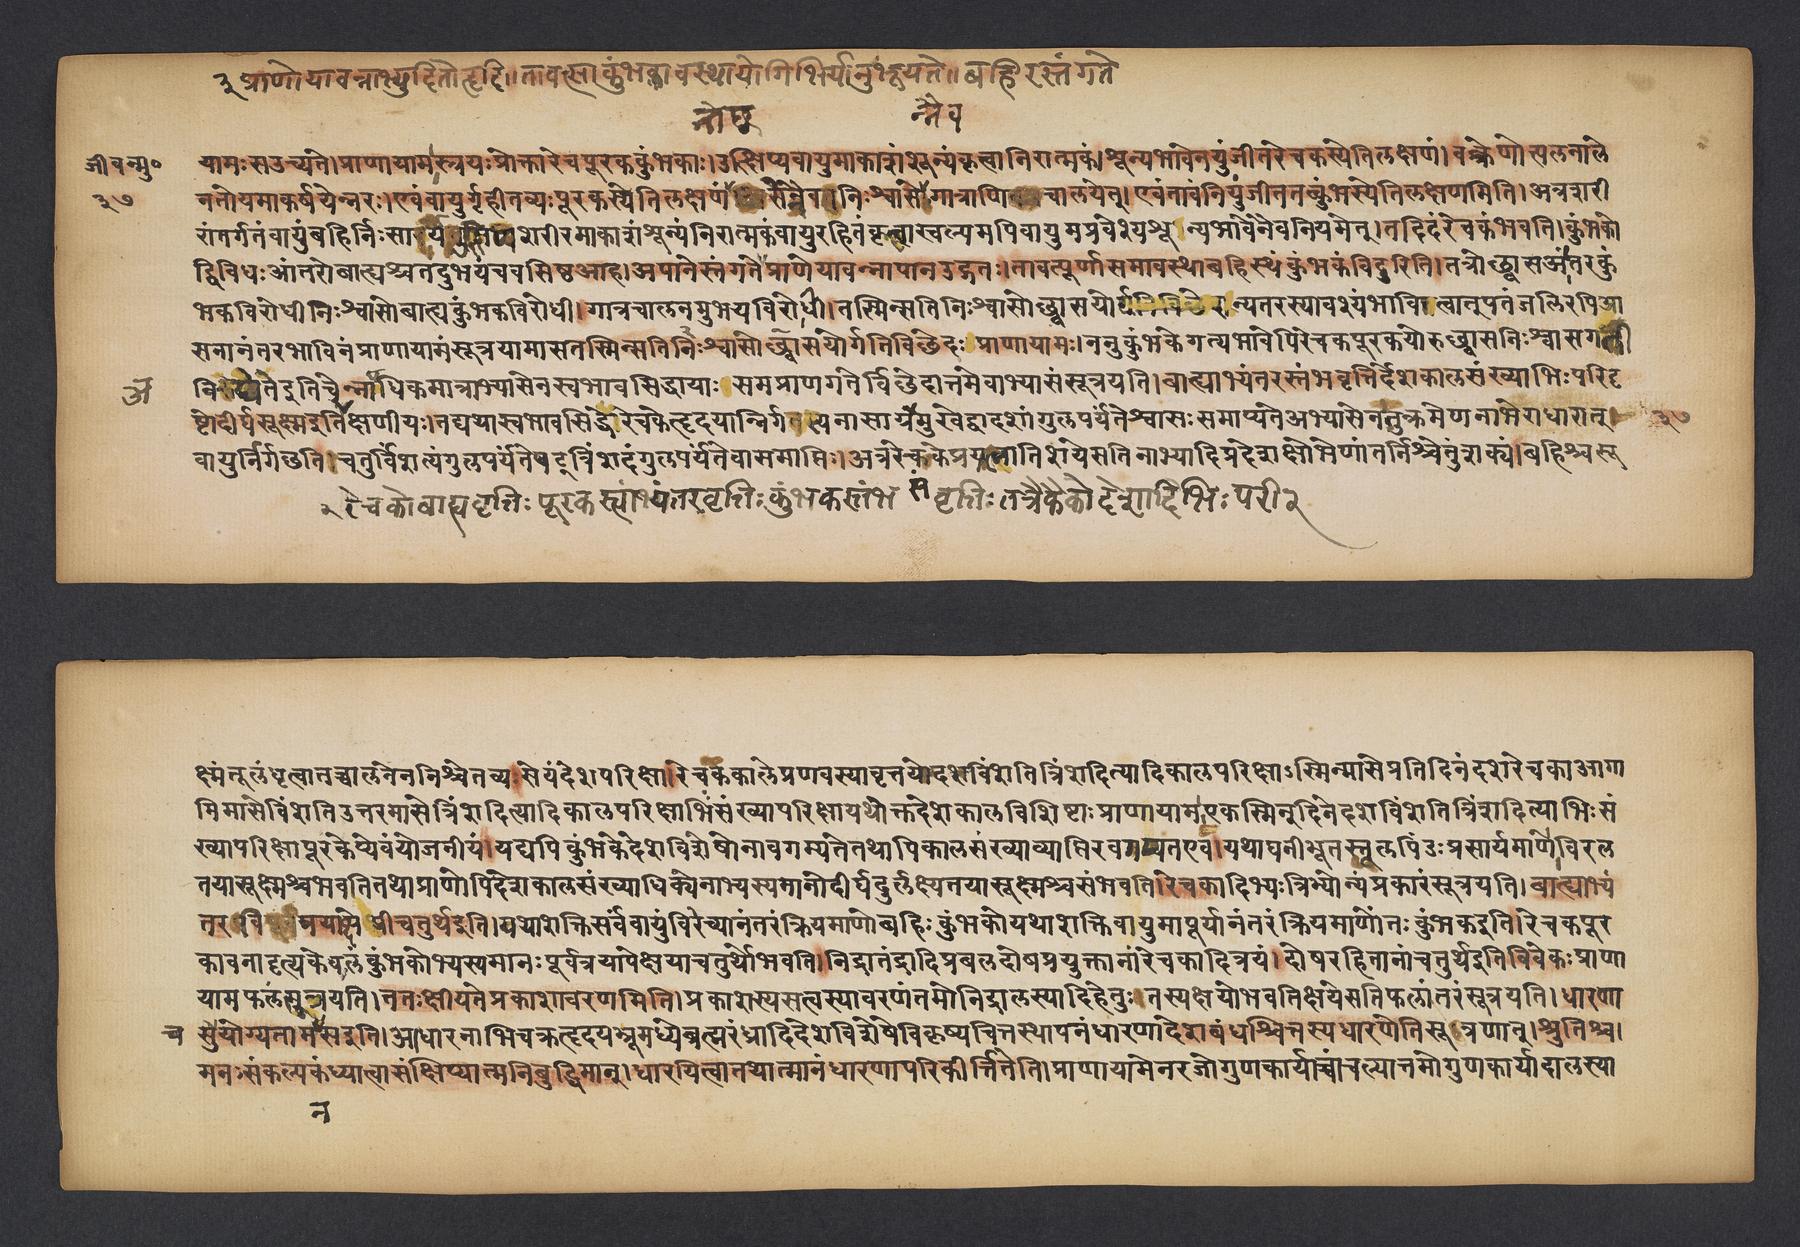 ३ प्राणोयावन्नाभ्युदितोहृदि।।तावत्सा कुंभकावस्थायोगिभिर्यानुभूयते।।बहिरस्तंगते
नोछ्व न्नैव
जीवन्मु०
३७
यामःसउच्यते।प्राणायामस्त्रयःप्रोक्तारेचपूरककुंभकाः।उत्क्षिप्यवायुमाकाशंशून्यंकृत्वानिरात्मकं।शून्यभावेनयुंजीतरेचकस्येतिलक्षणं।वक्रेणोत्पलनाले
नतोयमाकर्षयेन्नरः।एवंवायुर्गृहीतव्यःपूरकस्येतिलक्षणं निःश्वासेगात्राणि चालयेत्।एवंतावनियुंजीतनत्कुंभस्येतिलक्षणमिति।अत्रशरी
रांतर्गतंवायुंबहिर्निःसा शरीरमाकाशंशून्यंनिरात्मकंवायुरहितंकृत्वास्वल्पमपिवायुमप्रवेश्यशून्यभावेनैवनियमेत्।तदिदंरेचकंभवति।कुंभको
द्विविधःआंतरोबाह्यश्चतदुभयंचवसिष्ठआह।अपानेस्तंगतेप्राणेयावन्नापानउद्गतः।तावत्पूर्णासमावस्थाबहिस्थंकुंभकंविदुरिति।तत्रोछ्वासअंतरकुं
भकविरोधीनिःश्वासोबाह्यकुंभकविरोधी।गात्रचालनमुभयविरोधी।तस्मिन्सतिनिःश्वासोछ्वासयो न्यतरस्यावश्यंभावित्वात्पतंजलिरपिआ
सनानंतरभाविनंप्राणायामंसूत्रयामासतस्मिन्सतिनिःश्वासोछ्वासयोर्गतिविछेदः प्राणायामः।ननुकुंभकेगत्यभावेपिरेचकपूरकयोरुछ्वासनिःश्वासगती
अ
विद्येतेइतिचेन्नाधिकमात्राभ्यासेनस्वभावसिद्धायाः समप्राणगतेर्विछेदात्तमेवाभ्यासंसूत्रयति।बाह्याभ्यंतरस्तंभवृत्तिर्देशकालसंख्याभिःपरिदृ
ष्टोदीर्घसूक्ष्मइति क्षणीयः।तद्यथास्वभावसिद्धरेचकेहृदयान्निर्गत्यनासाग्रेमुखेद्वादशांगुलपर्यंतेश्वासःसमाप्यतेअभ्यासेनतुक्रमेणनाभेराधारात्
३७
वायुर्निर्गछति।चतुर्विंशत्यंगुलपर्यंतेषट्त्रिंशदंगुलपर्यंतेवासमाप्तिः।अत्ररेचकेप्रयत्नातिशयेसतिनाभ्यादिप्रदेशक्षोभेणांतर्निश्चेतुंशक्यं।बहिश्चसू
२ रेचकोबाह्यवृत्तिःपूरकस्त्वाभ्यंतरवृत्तिःकुंभकस्तंभवृत्तिःतत्रैकैकोदेशादिभिःपरी २
क्ष्मंतूलंधृत्वातच्चालनेननिश्चेतव्यःसेयंदेशपरिक्षा।रेचककालेप्रणवस्यावृत्तयोदशविंशतित्रिंशदित्यादिकालपरिक्षाऽस्मिन्मासेप्रतिदिनंदशरेचकाआगा
मिमासेविंशतिउत्तरमासेत्रिंशदित्यादिकालपरिक्षाभिःसंख्यापरिक्षायथोक्तदेशकालविशिष्टाःप्राणायामाएकस्मिन्दिनेदशविंशतित्रिंशदित्याभिःसं
ख्यापरिक्षापूरकेप्येवंयोजनीयं।यद्यपिकुंभकेदेशविशेषोनावगम्यतेतथापिकालसंख्याव्याप्तिरवगम्यतएव।यथाघनीभूतस्तूलपिंडःप्रसार्यमाणोविरल
तयासूक्ष्मश्चभवतितथाप्राणोपिदेशकालसंख्याधिक्येनाभ्यस्यमानोदीर्घदुर्लक्ष्यतयासूक्ष्मश्चसंभवति।रेचकादिभ्यःत्रिभ्योन्यंप्रकारंसूत्रयति।बाह्याभ्यं
तरविषयापेक्षीचतुर्थइति।यथाशक्तिसर्वंवायुंविरेच्यानंतरंक्रियमाणोबहिःकुंभकोयथाशक्तिवायुमापूर्यानंतरंक्रियमाणोंतःकुंभकइति।रेचकपूर
कावनादृत्यकेवलंकुंभकोभ्यस्यमानःपूर्वत्रयापेक्षयाचतुर्थोभवति।निद्रातंद्रादिप्रबलदोषप्रयुक्तानांरेचकादित्रयं।दोषरहितानांचतुर्थइतिविवेकःप्राणा
यामफलंसूत्रयति।ततःक्षीयतेप्रकाशावरणमिति।प्रकाशस्यसत्वस्यावरणंतमोनिद्रालस्यादिहेतुः तस्यक्षयोभवतिक्षयेसतिफलांतरंसूत्रयति।धारणा
च सुयोग्यतामनसइति।आधारनाभिचक्रहृदयभ्रूमध्यब्रह्मरंध्रादिदेशविशेषेविकृष्यचित्तस्थापनंधारणादेशबंधश्चित्तस्यधारणेतिसूत्रणात्।श्रुतिश्च।
मनःसंकल्पकंध्यात्वासंक्षिप्यात्मनिबुद्धिमान्।धारयित्वातथात्मानंधारणापरिकीर्त्तितेति।प्राणायामेनरजोगुणकार्याच्चांचल्यात्तमोगुणकार्यादालस्या
न